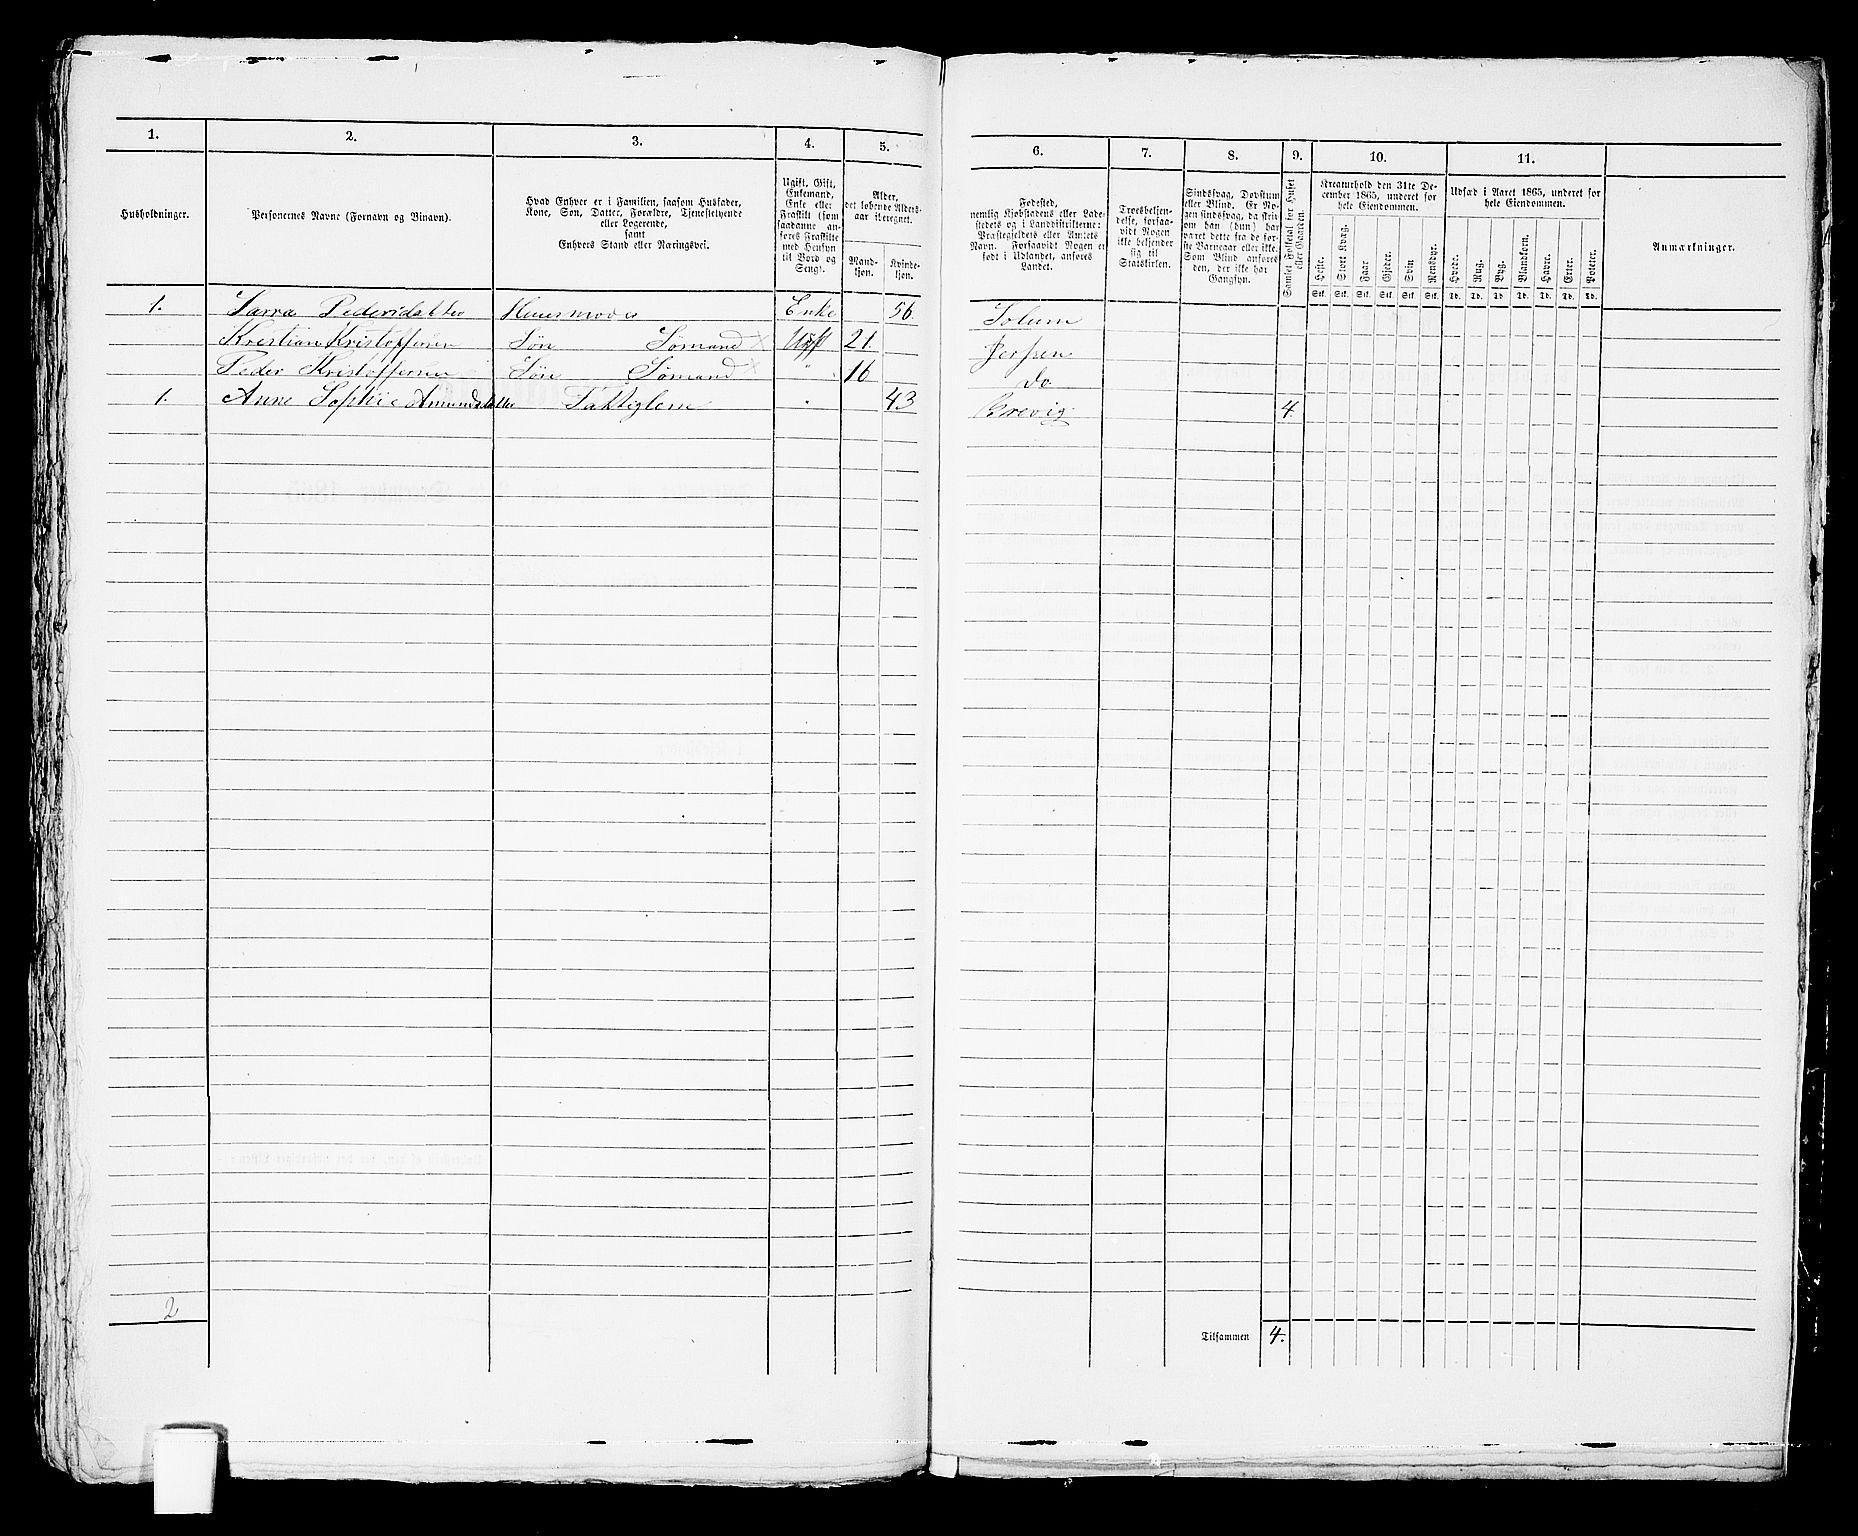 1. 2. 3. 4. 5. 6. 7. 8. 9. 10. 11.
Husholdninger.
Personernes Navne (Fornavn og Binavn).
Hvad Enhver er i Familien, saasom Husfader,
Kone, Søn, Datter, Forældre, Tjenestetyende
eller Logerende,
samt
Enhvers Stand eller Næringsvei.
Ugift, Gift,
Enkemand,
Enke eller
Fraskilt (som
saadanne an-
føres Fraskilte
med Hensyn
til Bord og
Seng).
Alder,
det løbende Alders-
aar iberegnet.
Mand-
kjøn.
Kvinde-
kjøn.
Fødested,
nemlig Kjøbstadens eller Lade-
stedets og i Landdistrikterne:
Præstegjeldets eller Amtets
Navn. Forsaavidt Nogen er
født i Udlandet, anføres
Landet.
Troesbekjen-
delse, forsaa-
vidt Nogen
ikke bekjender
sig til
Statskirken.
Sindssvag, Døvstum
eller Blind. Er No-
gen sindssvag, da skriv
om han (hun) har
været dette fra de før-
ste Barneaar eller ikke.
Som Blind anføres
den, der ikke har
Gangsyn.
Samlet Folketal for Huset
eller Gaarden.
Kreaturhold den 31te De-
cember 1865, underet for
hele Eiendommen.
Heste. Stort Kvæg. Faar. Gjeder. Svin Rensdyr.
Stk. Stk. Stk. Stk. Stk. Stk.
Udsæd i Aaret 1865, underet for
hele Eiendommen.
Hvede. Rug. Byg. Blandkorn. Havre. Erter. Poteter.
Td. Td. Td. Td. Td. Td. Td.
Anmærkninger.
1. Sarra Pedersdatter Huusmoder Enke 56 Solum
Krestian Kristoffersen Søn Sømand Ugift 21. Jerpen
Peder Kristoffersen Søn Sømand " 16 Do
1. Anne Sophie Amundsdatter Fattiglem " 43 Brevig 4.
2
Tilsammen 4.